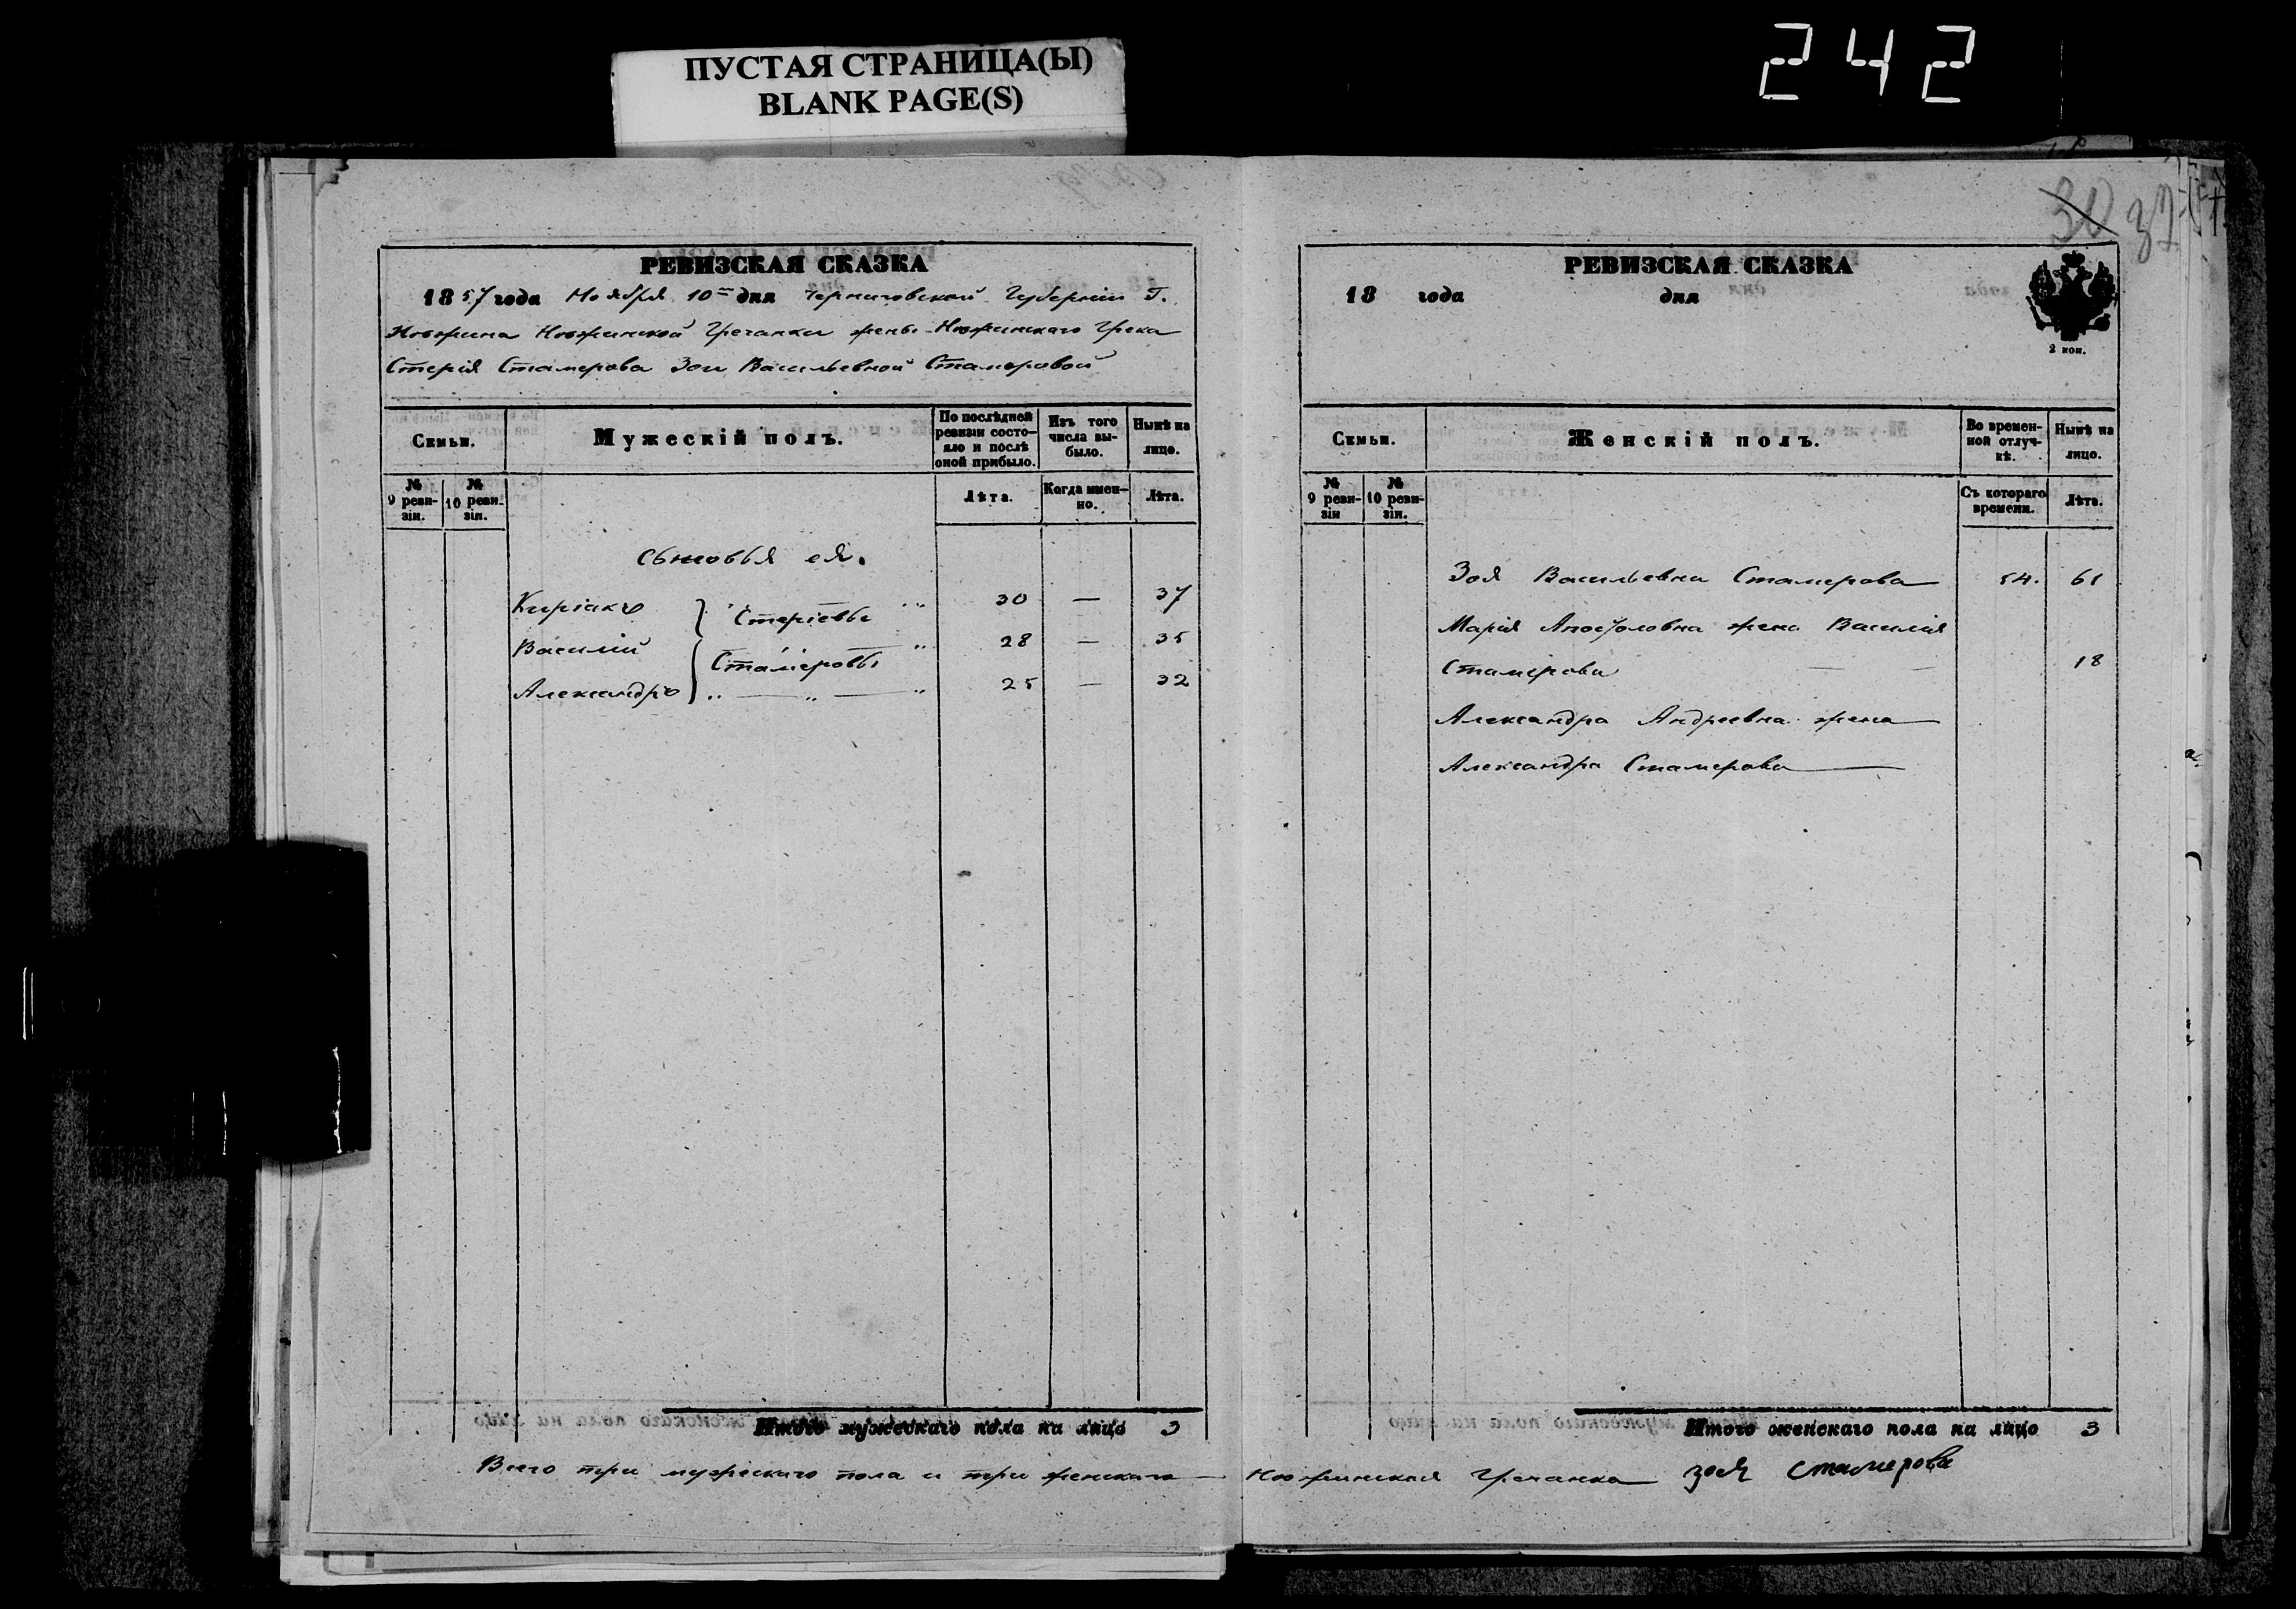 ПУСТАЯ СТРАНИЦА(Ы)
BLANK PAGE(S)
242
РЕВИЗСКАЯ СКАЗКА
1857 года Ноября 10 дня Черниговской Губерніи Г.
Нѣжина Нѣжинской Гречанки жены Нѣжинскаго Грека
Стерія Стамерова Зои Васильевной Стамеровой
Семьи.
Мужескій полъ.
По послѣдней ревизіи состояло и послѣ оной прибыло.
Изъ того числа выбыло.
Нынѣ на лицо.
№ 9 ревизіи.
№ 10 ревизіи.
Лѣта.
Когда именно.
Лѣта.
сыновья ея.
Киріакъ } Стеріевы 30 — 37
Василій { Стамеровы 28 — 35
Александръ 25 — 32
Итого мужескаго пола на лицо 3
Всего три мужескаго пола и три женскаго —
30 37
РЕВИЗСКАЯ СКАЗКА
18 года дня
2 коп.
Семьи.
Женскій полъ.
Во временной отлучкѣ.
Нынѣ на лицо.
№ 9 ревизіи
№ 10 ревизіи.
Съ котораго времени.
Лѣта.
Зоя Васильевна Стамерова 54. 61
Марія Апостоловна жена Василія
Стамерова 18
Александра Андреевна жена
Александра Стамерова
Итого женскаго пола на лицо 3
Нѣжинская Гречанка Зоя Стамерова